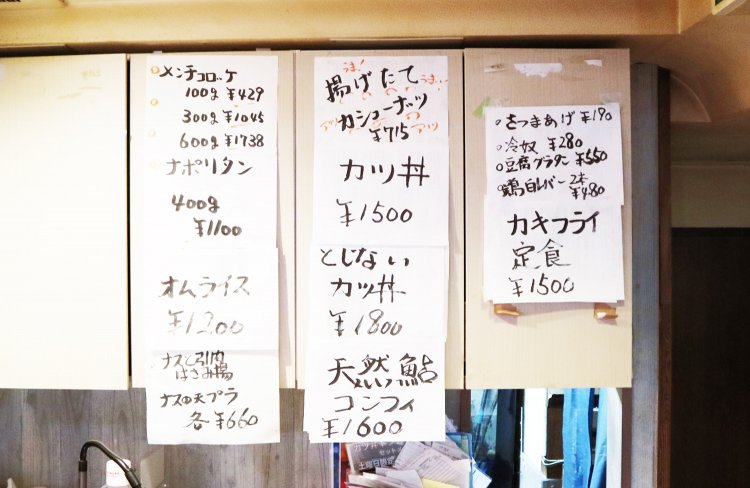 メンチコロッケ
100g ¥429
300g ¥1045
600g ¥1738
ナポリタン
400g
¥1100
オムライス
¥1200
ナスと引肉
はさみ揚
ナスの天プラ
各 ¥660
うま!
うまい
揚げたての
カシューナッツ
アツ
アツ
¥715
カツ丼
¥1500
とじない
カツ丼
¥1800
天然鮎
コンフィ
¥1600
さつまあげ ¥190
冷奴 ¥280
豆腐グラタン ¥550
鶏白レバー 2本
¥480
カキフライ
定食
¥1500